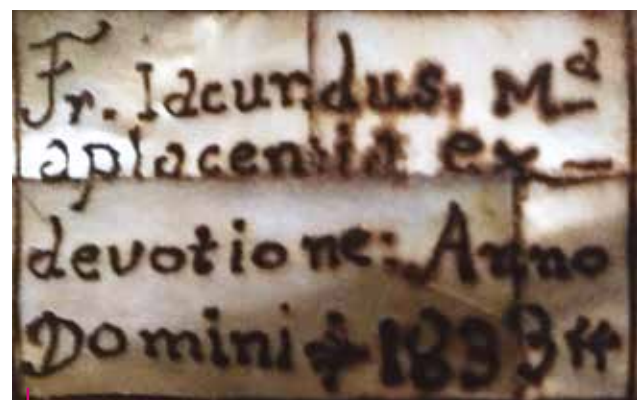 Fr. Iacundus, Mª
aplacentia ex-
devotione: Anno
Domini ⸭ 1833